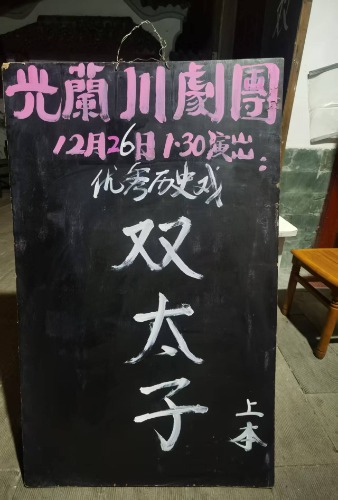 光蘭川劇團
12月26日1·30演出:
优秀历史戏
双太子
上本